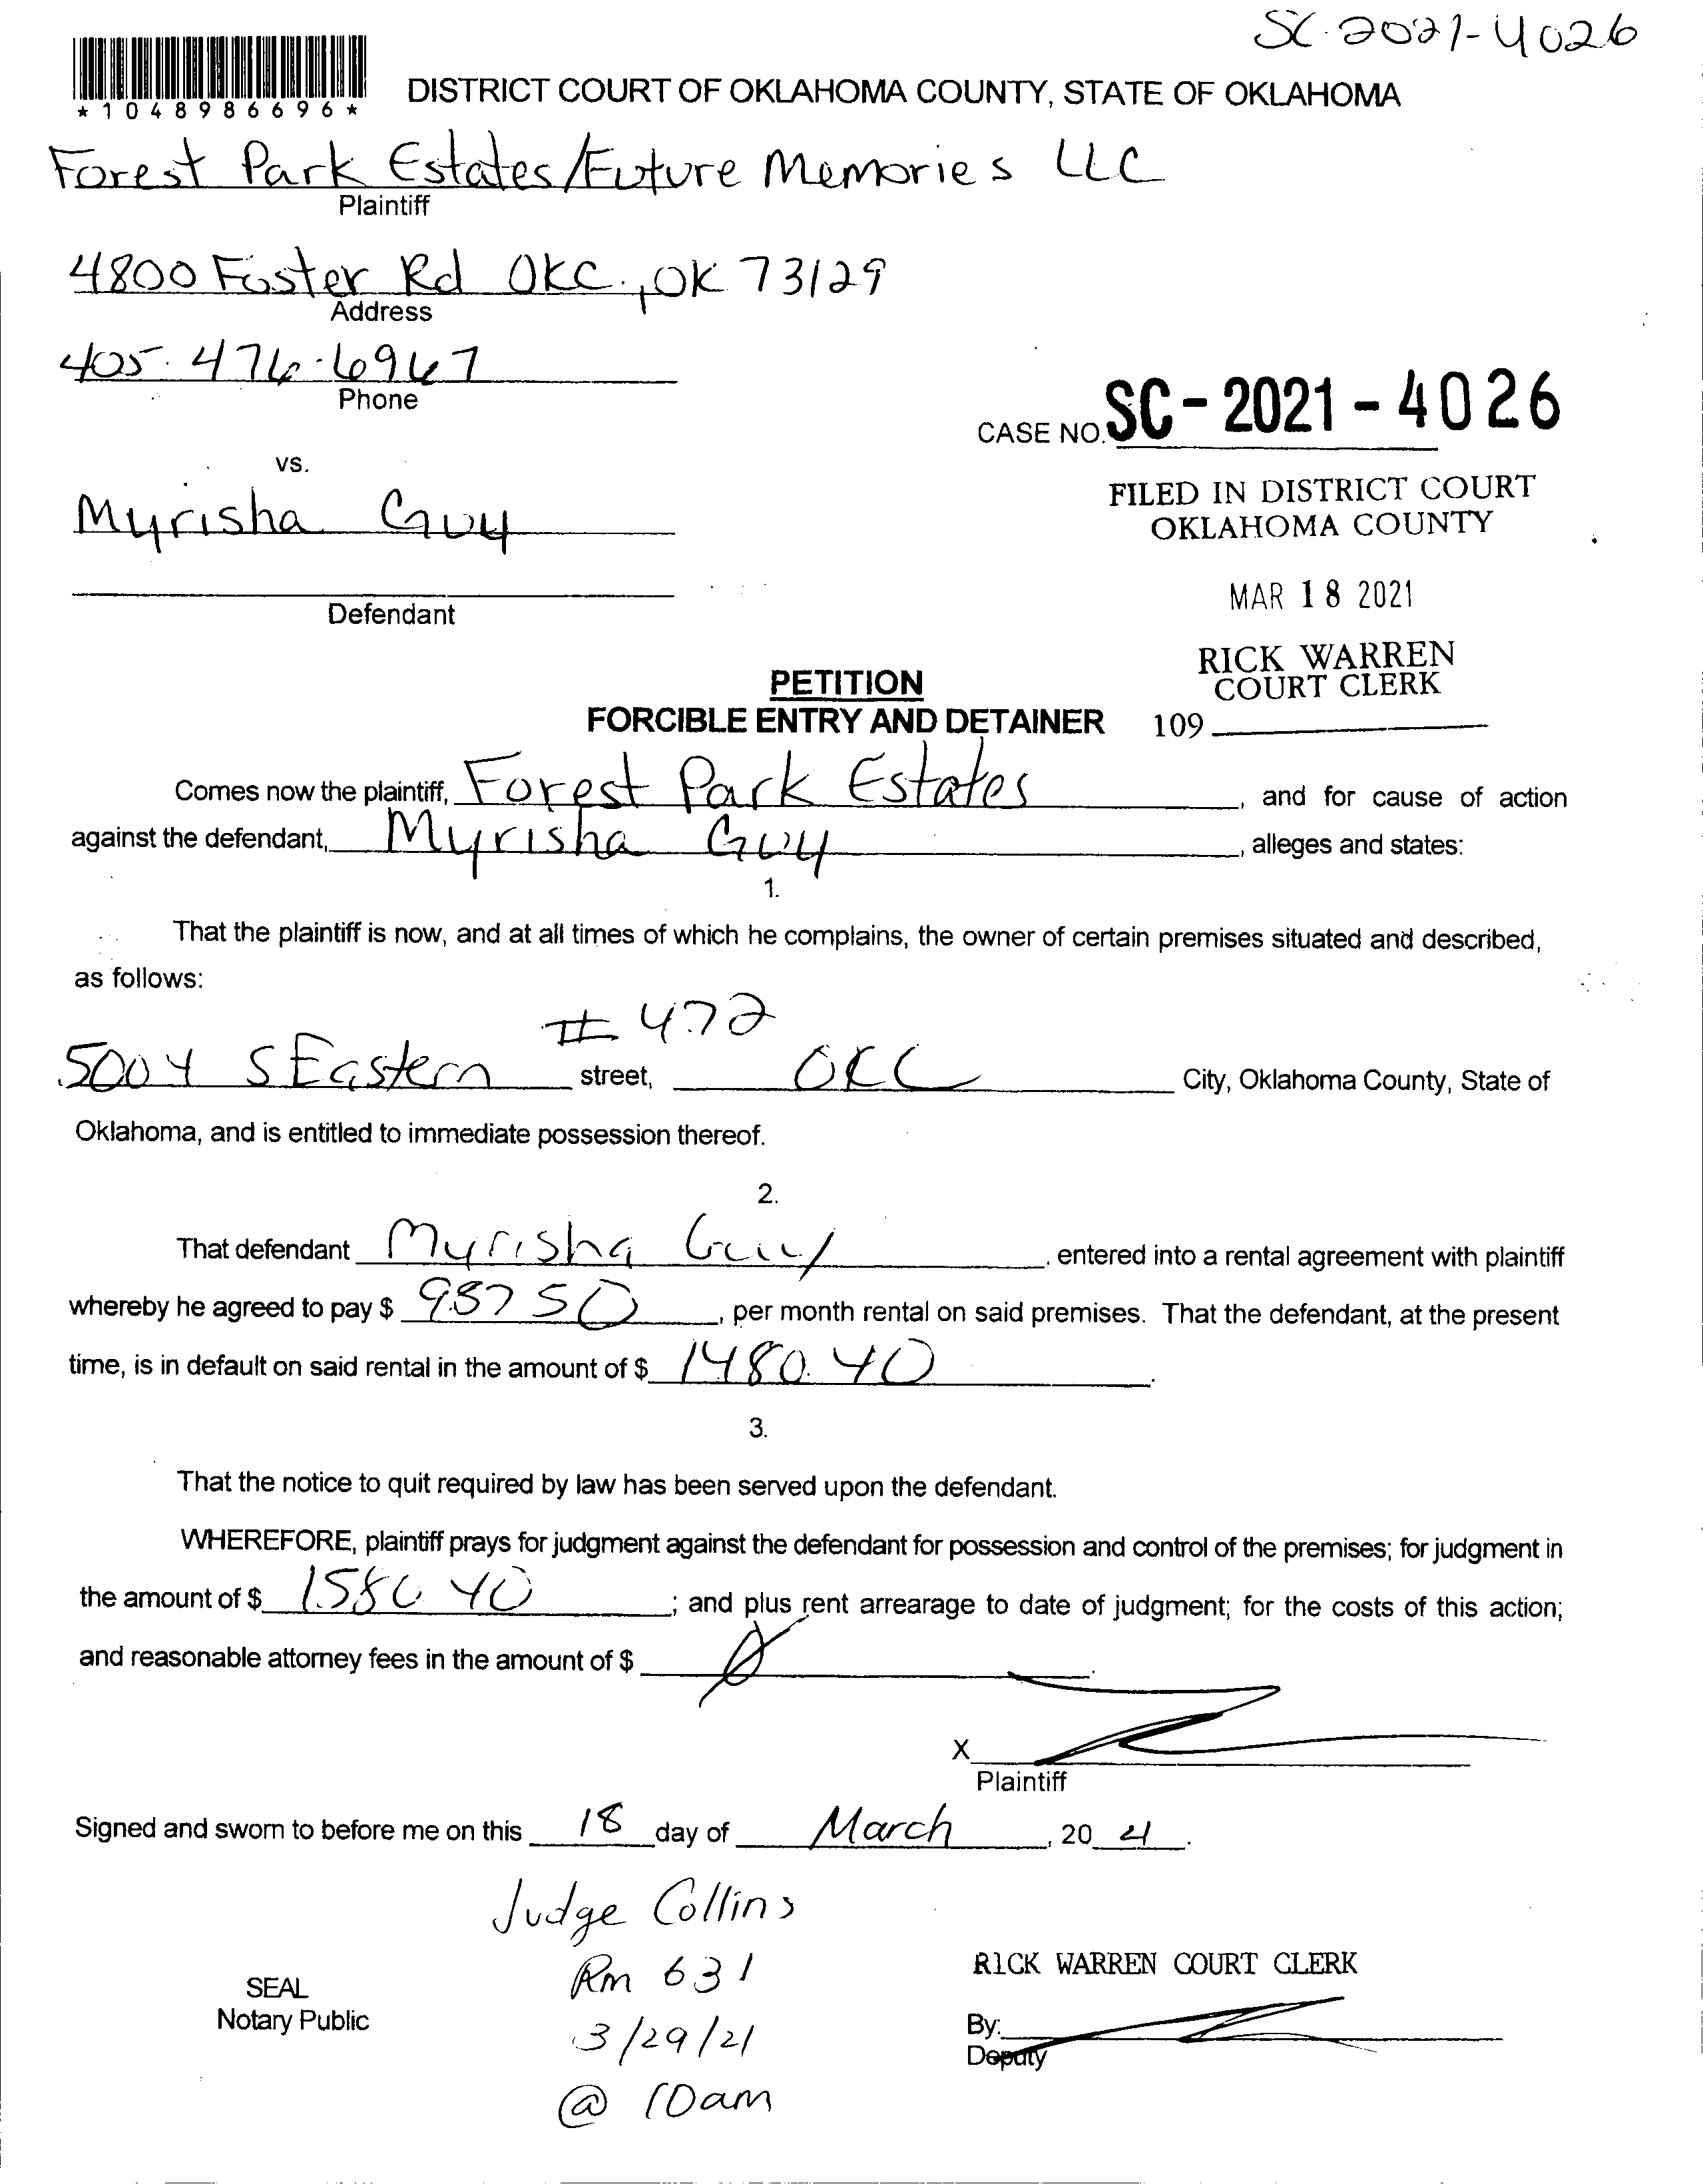 SC-2021-4026
*1048986696*
DISTRICT COURT OF OKLAHOMA COUNTY, STATE OF OKLAHOMA
Forest Park Estates/Future Memories LLC
Plaintiff
4800 Foster Rd OKC., OK 73129
Address
405-476-6967
Phone
CASE NO. SC-2021-4026
vs.
Myrisha Guy
FILED IN DISTRICT COURT
OKLAHOMA COUNTY
MAR 18 2021
Defendant
RICK WARREN
COURT CLERK
109
PETITION
FORCIBLE ENTRY AND DETAINER
Comes now the plaintiff, Forest Park Estates, and for cause of action
against the defendant, Myrisha Guy, alleges and states:
1.
That the plaintiff is now, and at all times of which he complains, the owner of certain premises situated and described,
as follows:
# 472
5004 S Eastern street, OKC City, Oklahoma County, State of
Oklahoma, and is entitled to immediate possession thereof.
2.
That defendant Myrisha Guy, entered into a rental agreement with plaintiff
whereby he agreed to pay $ 937 50, per month rental on said premises. That the defendant, at the present
time, is in default on said rental in the amount of $ 1480.40.
3.
That the notice to quit required by law has been served upon the defendant.
WHEREFORE, plaintiff prays for judgment against the defendant for possession and control of the premises; for judgment in
the amount of $ 1580 40; and plus rent arrearage to date of judgment; for the costs of this action;
and reasonable attorney fees in the amount of $ Ø.
X
Plaintiff
Signed and sworn to before me on this 18 day of March, 20 21.
Judge Collins
Rm 631
3/29/21
@ 10am
SEAL
Notary Public
RICK WARREN COURT CLERK
By:
Deputy